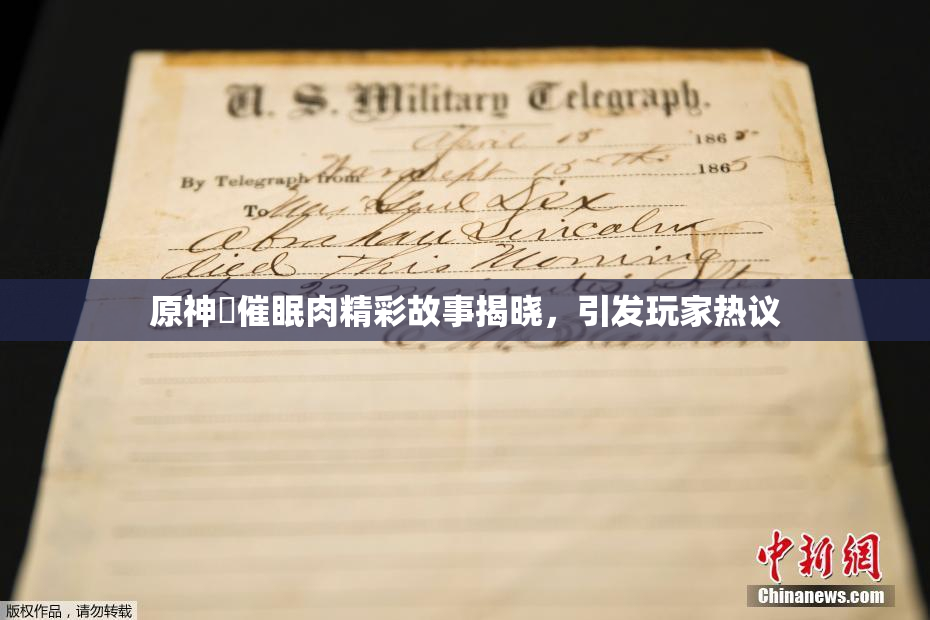 U. S. Military Telegraph.
April 15 1865
By Telegraph from War Dept 15th 1865
To Maj Genl Dix
Abraham Lincoln
died This Morning
at 22 minutes after
原神催眠肉精彩故事揭晓，引发玩家热议
E. M. Stanton
中新网
Chinanews.com
版权作品，请勿转载